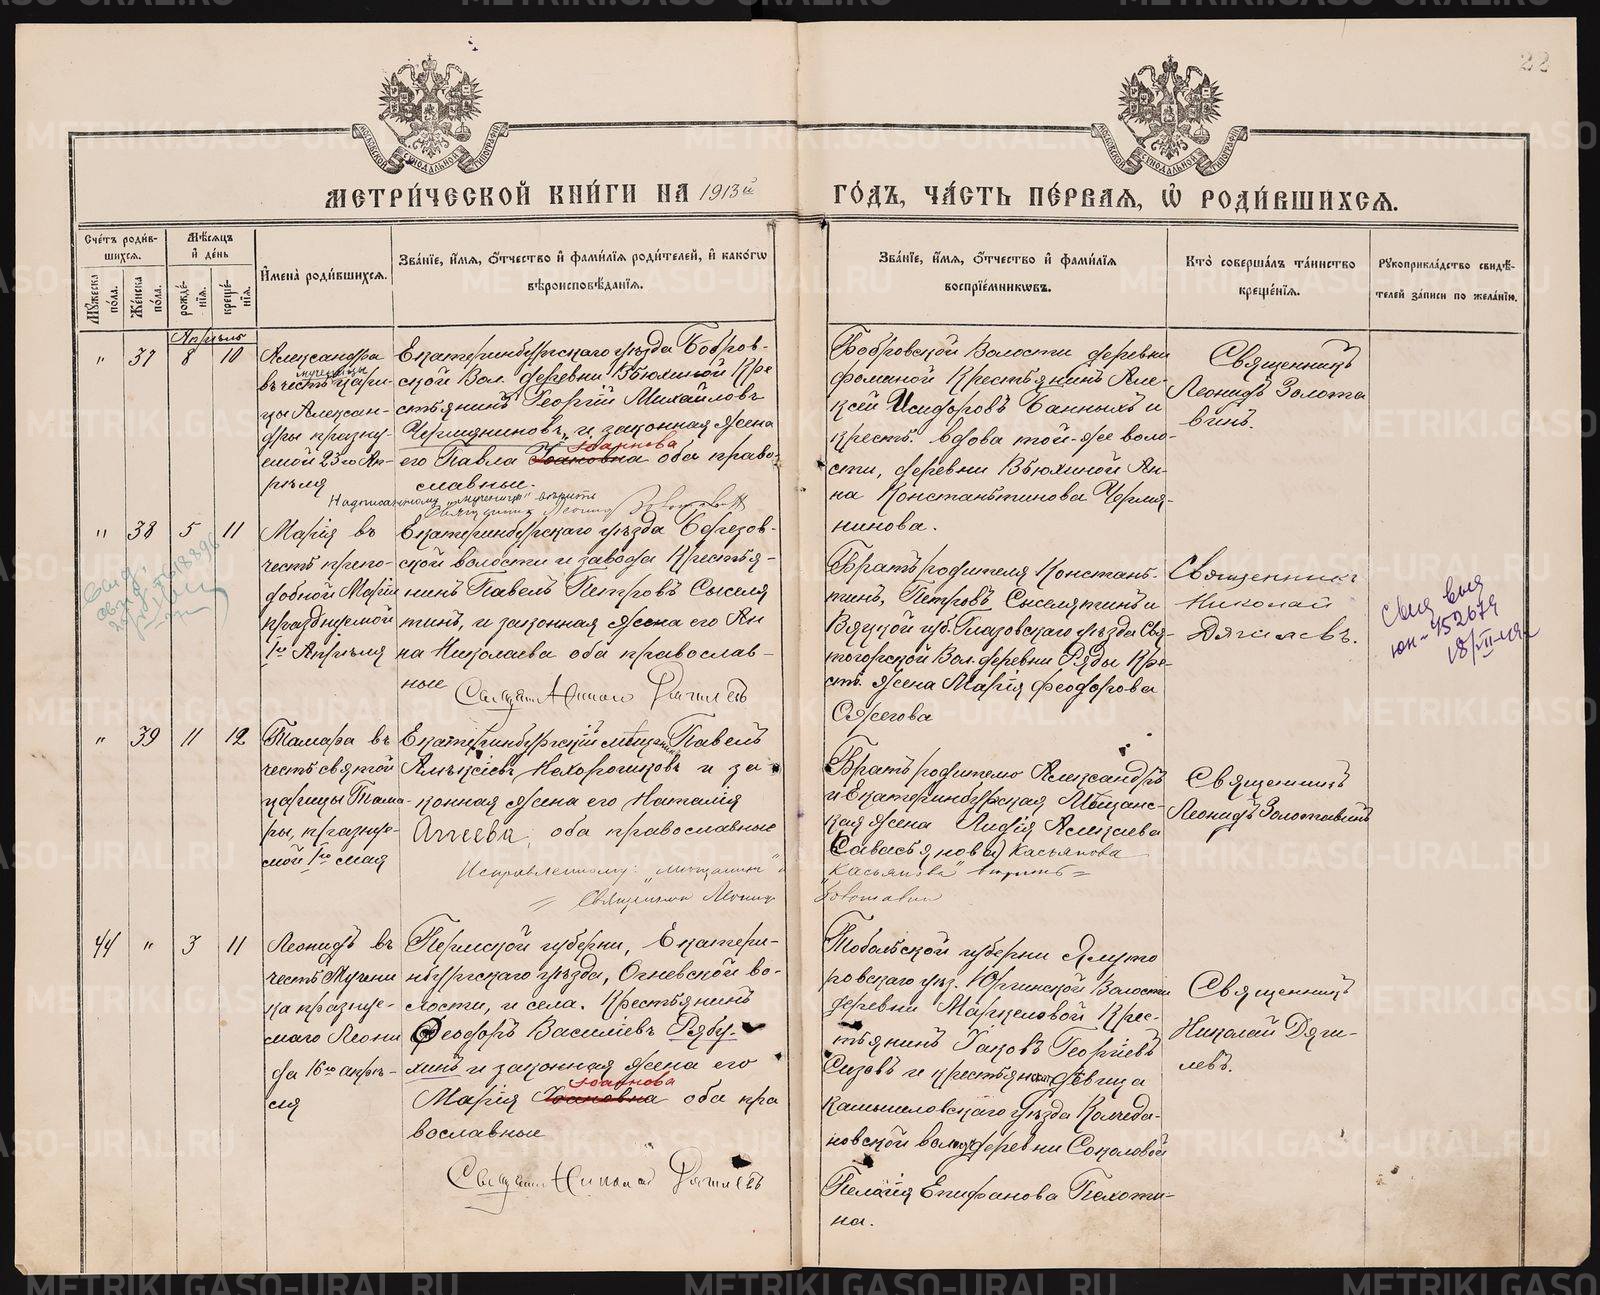 22
МЕТРИ́ЧЕСКОЙ КНИ́ГИ НА 1913й ГО́ДЪ, ЧА́СТЬ ПЕ́РВАѦ, Ѡ҆ РОДИ́ВШИХСѦ.
Сче́тъ роди́в-
шихсѧ.
Мꙋ́жеска по́ла.
Же́нска по́ла.
Мѣ́сѧцъ и҆ де́нь
рожде́-
нїѧ.
креще́-
нїѧ.
И҆мена̀ роди́вшихсѧ.
Зва́нїе, и҆́мѧ, ѻ҆́тчество и҆ фами́лїѧ роди́телей, и҆ како́гѡ
вѣроисповѣ́данїѧ.
Зва́нїе, и҆́мѧ, ѻ҆́тчество и҆ фами́лїѧ
воспрїе́мникѡвъ.
Кто̀ соверша́лъ та́инство
креще́нїѧ.
Рꙋкоприкла́дство свидѣ́-
телей за́писи по жела́нїю.
Апрѣль
" 37 8 10
Александра
въ честь мученицы цари-
цы Алексан-
дры празну-
емой 23го Ап-
рѣля
Екатеринбургскаго уѣзда Бобров-
ской Вол. деревни Вьюхиной Кре
стьянинъ Георгій Михайловъ
Чермяниновъ, и законная жена
его Павла Иоанновна Іоаннова оба право-
славные.
Надписанному "мученицы" вѣрить
Священникъ Леонидъ Золотавинъ
Бобровской Волости деревни
Фоминой Крестьянинъ Але-
ксей Исидоровъ Банныхъ и
крест. вдова той-же воло-
сти, деревни Вьюхиной Ан-
на Константинова Чермя-
нинова.
Священникъ
Леонидъ Золота
винъ.
" 38 5 11
Марія въ
честь препо-
добной Маріи
празднуемой
1го Апрѣля
Екатеринбургскаго уѣзда Березов-
ской волости и завода Крестья-
нинъ Павелъ Петровъ Сыселя
тинъ, и законная жена его Ан
на Николаева оба православ-
ные
Священ. Николай Дягилевъ
Братъ родителя Констан-
тинъ, Петровъ Сыселятинъ и
Вяцкой губ. Глазовскаго уѣзда Свя-
тогорской Вол. деревни Ряды Кре-
ст. жена Марія Феодорова
Ожегова
Священникъ
Николай
Дягилевъ.
юн- 452679
" 39 11 12
Тамара въ
честь святой
царицы Тама-
ры, празнуе-
мой 1го мая
Екатеринбургскій мѣщанинъ Павелъ
Алексіевъ Нехорошковъ и за
конная жена его Наталія
Аггеева, оба православные
Исправленному: "мѣщанинъ"
= Священникъ Леонид
Братъ родителю Александръ
и Екатеринбургская Мѣщанс-
кая жена Лидія Алексаева
(Савастьянова) Касьянова
"Касьянова" вѣрить =
Золотавин
Священникъ
Леонидъ Золотавинъ
44 " 3 11
Леонидъ въ
честь Мучени
ка празнуе-
маго Леони
да 16го апрѣ-
ля
Пермской губерни, Екатери-
нбургскаго уѣзда, Огневской во-
лости, и села. Крестьянинъ
Феодоръ Василіевъ Рябу-
хинъ и законная жена его
Марія Иоанновна Іоаннова оба пра
вославные
Священ. Николай Дягилевъ
Тобольской губерни Ялуто
ровскаго уѣз. Юргинской Волости
деревни Маркеловой Крес-
тьянинъ Іаковъ Георгіевъ
Сизовъ и крестьянская дѣвица
Камышловскаго уѣзда Колчеда-
новской волости деревни Соколовой
Пелагія Епифанова Пехоти-
на.
Священникъ
Николай Дяги-
левъ.
METRIKI.GASO-URAL.RU